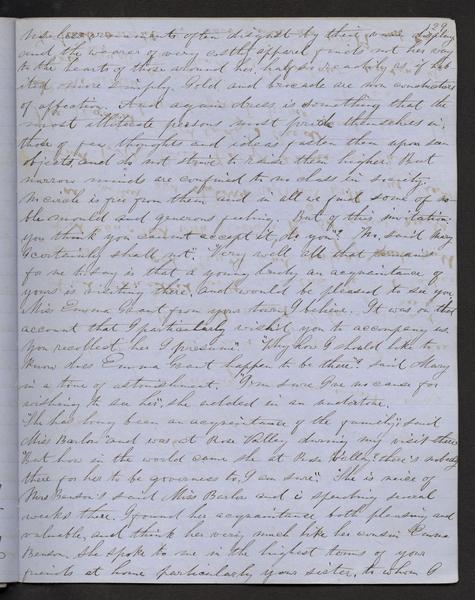 29
often disgust by their display
and the wearer of very costly apparel finds not her way
to the hearts of those around her, half so readily as if hab
ited more simply. Gold and brocade are non conductors
of affection. And again dress is something that the
most illiterate persons most pride themselves in,
those of few thoughts and ideas fasten them upon such
objects and do not strive to raise them higher. But
narrow minds are confined to no class in society.
No circle is free from them and in all we find some of no
ble mould and generous feeling. But of this invitation
you think you cannot accept it, do you?" "No, said Mary
I certainly shall not". "Very well all that remains
for me to say is that a young lady an acquaintance of
yours is visiting there, and would be pleased to see you
Miss Emma Grant from your town I believe. It was on that
account that I particularly wish'd you to accompany us
you recollect her I presume". "Why how I should like to
know does Emma Grant happen to be there"? said Mary
in a tone of astonishment. "I'm sure I've no cause for
wishing to see her", she added in an undertone.
"She has long been an acquaintance of the family", said
Miss Barlow "and was at Rose Valley during my visit there"
"But how in the world came she at Rose Valley? there's nobody
there for her to be governess to, I am sure". "She is niece of
Mrs Benson's said Miss Barlow and is spending several
weeks there. I found her acquaintance both pleasing and
valuable, and think her very much like her cousin Emma
Benson. She spoke to me in the highest terms of your
friends at home particularly your sister, to whom I